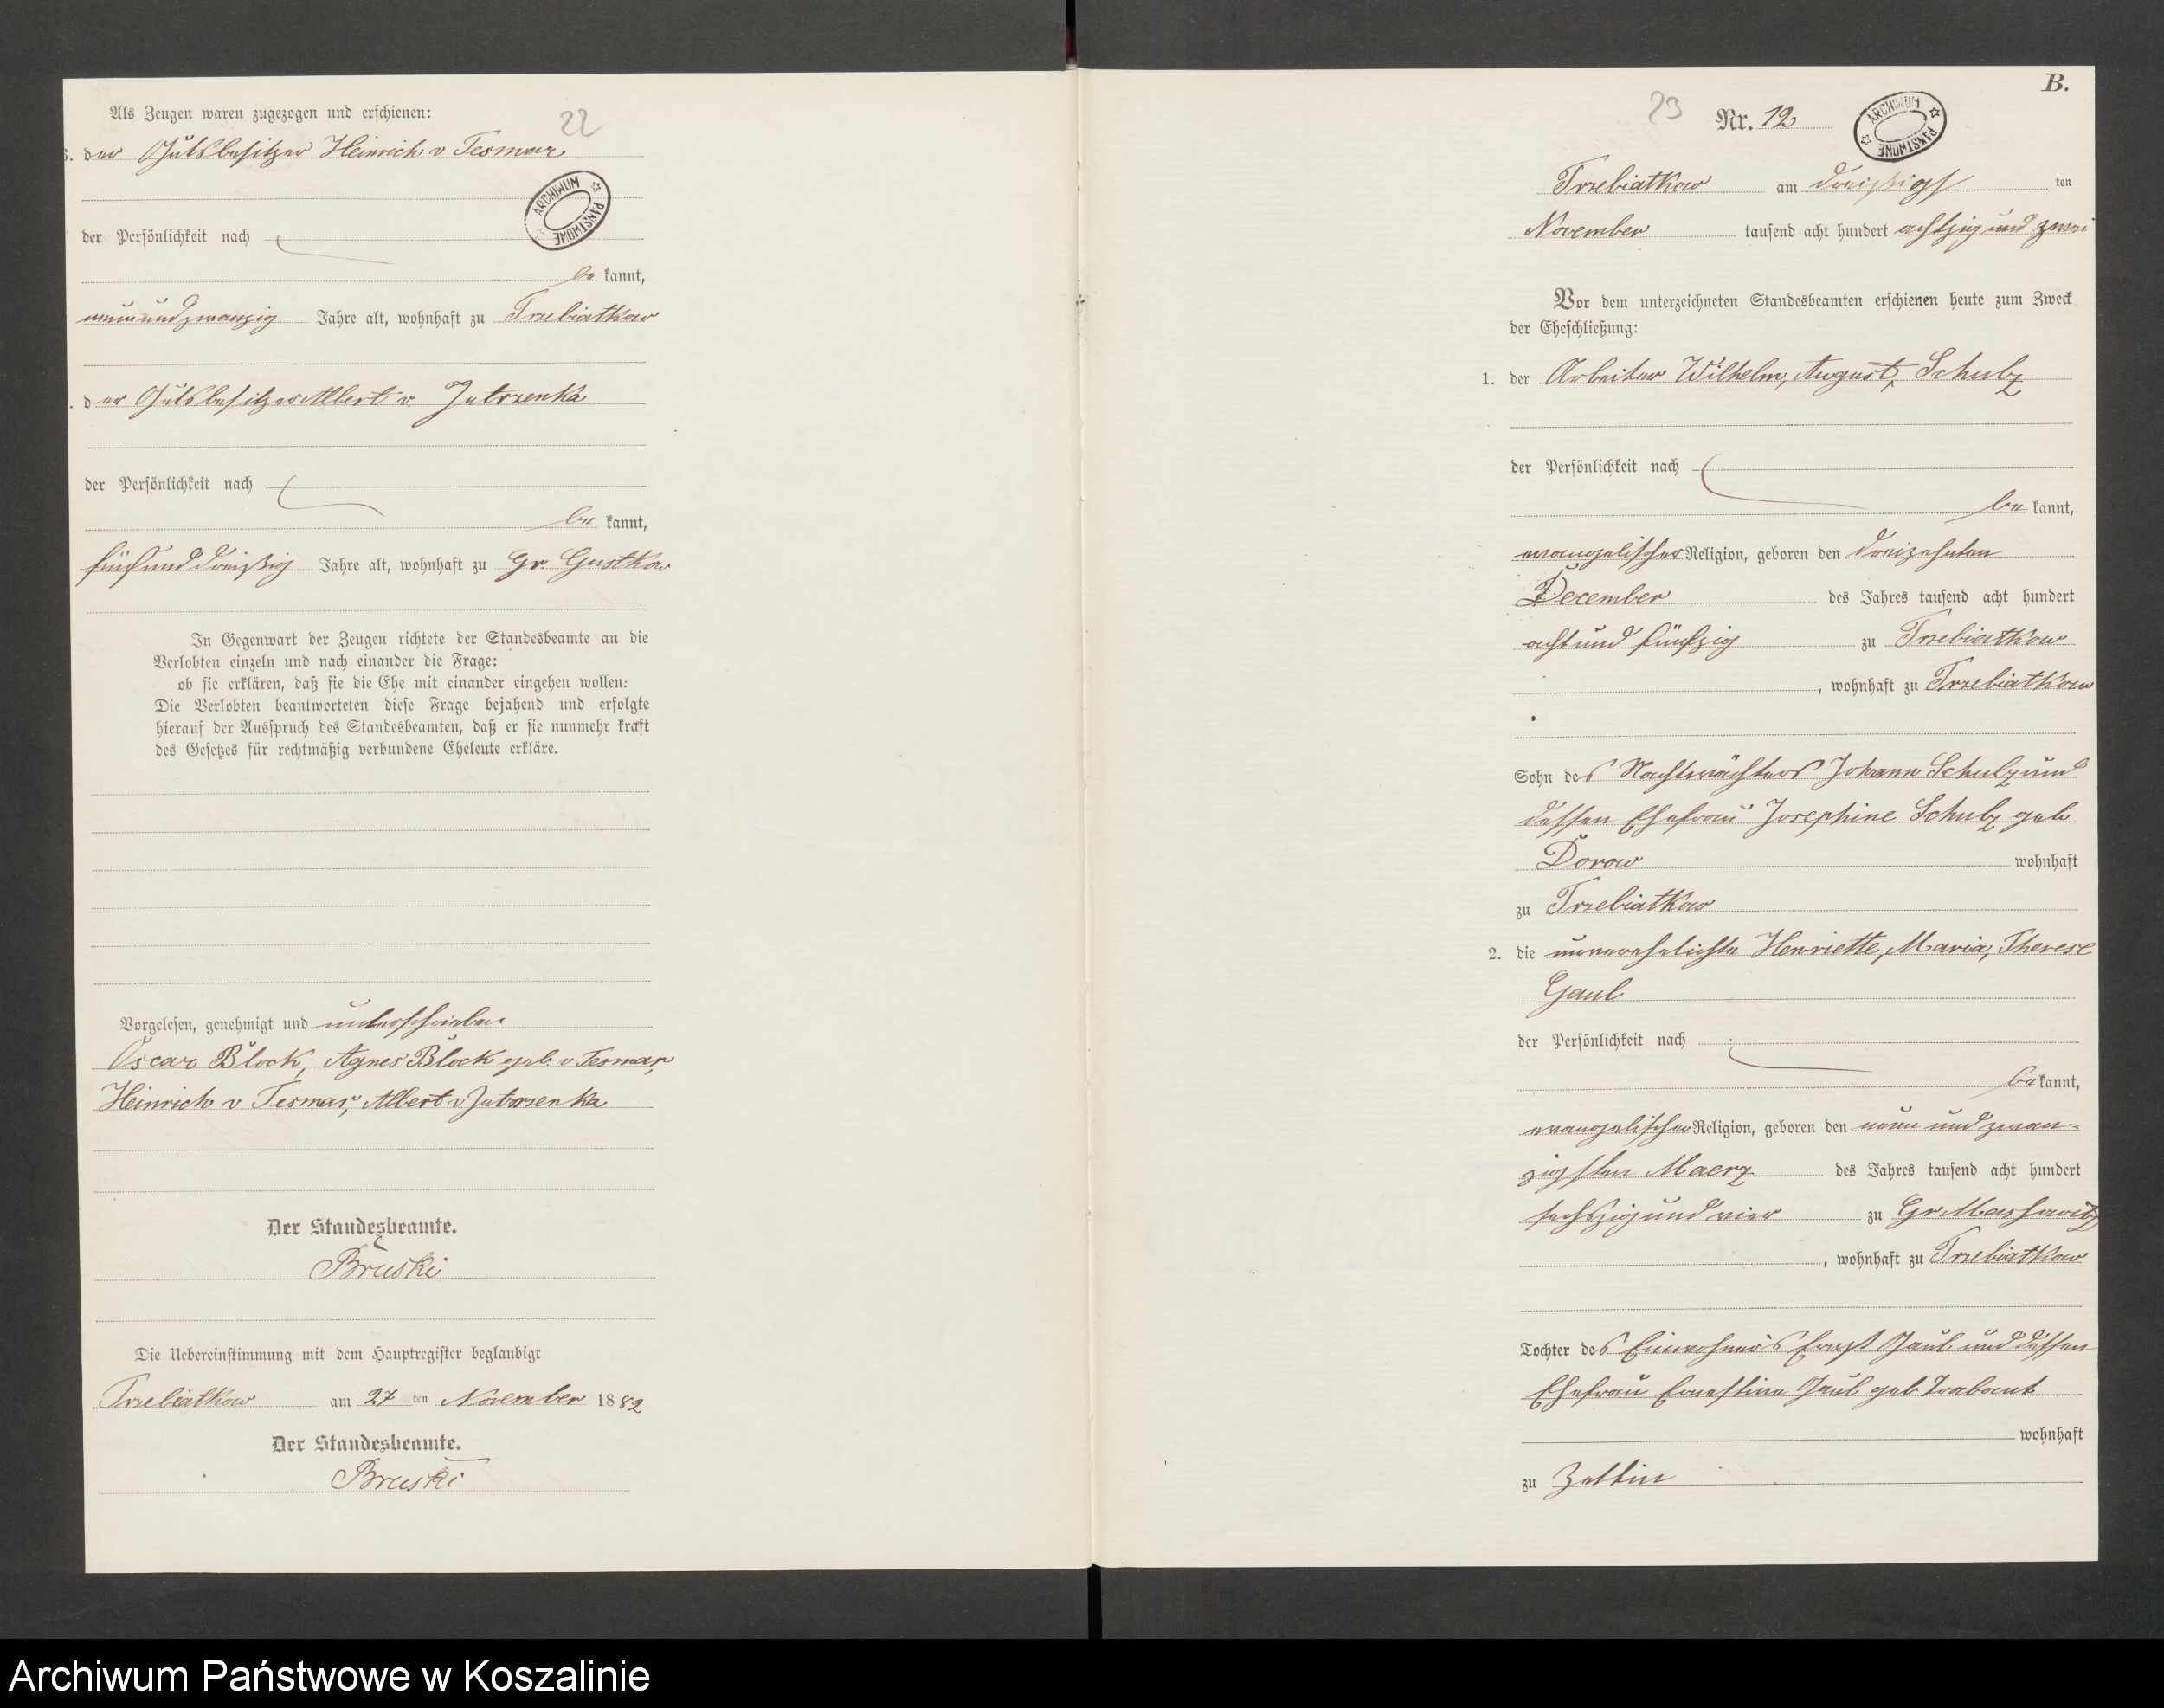 Als Zeugen waren zugezogen und erschienen:
22
3. der Gutsbesitzer Heinrich v Tesmar
ARCHIWUM PAŃSTWOWE
der Persönlichkeit nach
be kannt,
neunundzwanzig Jahre alt, wohnhaft zu Trzebiatkow
. der Gutsbesitzer Albert v. Jutrzenka
der Persönlichkeit nach
be kannt,
fünfunddreißig Jahre alt, wohnhaft zu Gr. Gustkow
In Gegenwart der Zeugen richtete der Standesbeamte an die
Verlobten einzeln und nach einander die Frage:
ob sie erklären, daß sie die Ehe mit einander eingehen wollen:
Die Verlobten beantworteten diese Frage bejahend und erfolgte
hierauf der Ausspruch des Standesbeamten, daß er sie nunmehr kraft
des Gesetzes für rechtmäßig verbundene Eheleute erkläre.
Vorgelesen, genehmigt und unterschrieben
Oscar Block, Agnes Block geb. v Tesmar,
Heinrich v Tesmar, Albert v Jutrzenka
Der Standesbeamte.
Bruski
Die Uebereinstimmung mit dem Hauptregister beglaubigt
Trzebiatkow am 27 ten November 1882
Der Standesbeamte.
Bruski
B.
23
Nr. 12
ARCHIWUM PAŃSTWOWE
Trzebiatkow am dreißigst ten
November tausend acht hundert achtzig und zwei
Vor dem unterzeichneten Standesbeamten erschienen heute zum Zweck
der Eheschließung:
1. der Arbeiter Wilhelm, August, Schulz
der Persönlichkeit nach
be kannt,
evangelischer Religion, geboren den dreizehnten
December des Jahres tausend acht hundert
acht und fünfzig zu Trzebiatkow
, wohnhaft zu Trzebiatkow
Sohn des Nachtwächters Johann Schulz und
dessen Ehefrau Josephine Schulz geb
Dorow wohnhaft
zu Trzebiatkow
2. die unverehelichte Henriette, Maria, Therese
Gaul
der Persönlichkeit nach
be kannt,
evangelischer Religion, geboren den neun und zwan-
zigsten Maerz des Jahres tausend acht hundert
sechszig und vier zu Gr Massowitz
, wohnhaft zu Trzebiatkow
Tochter des Einwohners Ernst Gaul und dessen
Ehefrau Ernestine Gaul geb. Trabant
wohnhaft
zu Zettin
Archiwum Państwowe w Koszalinie